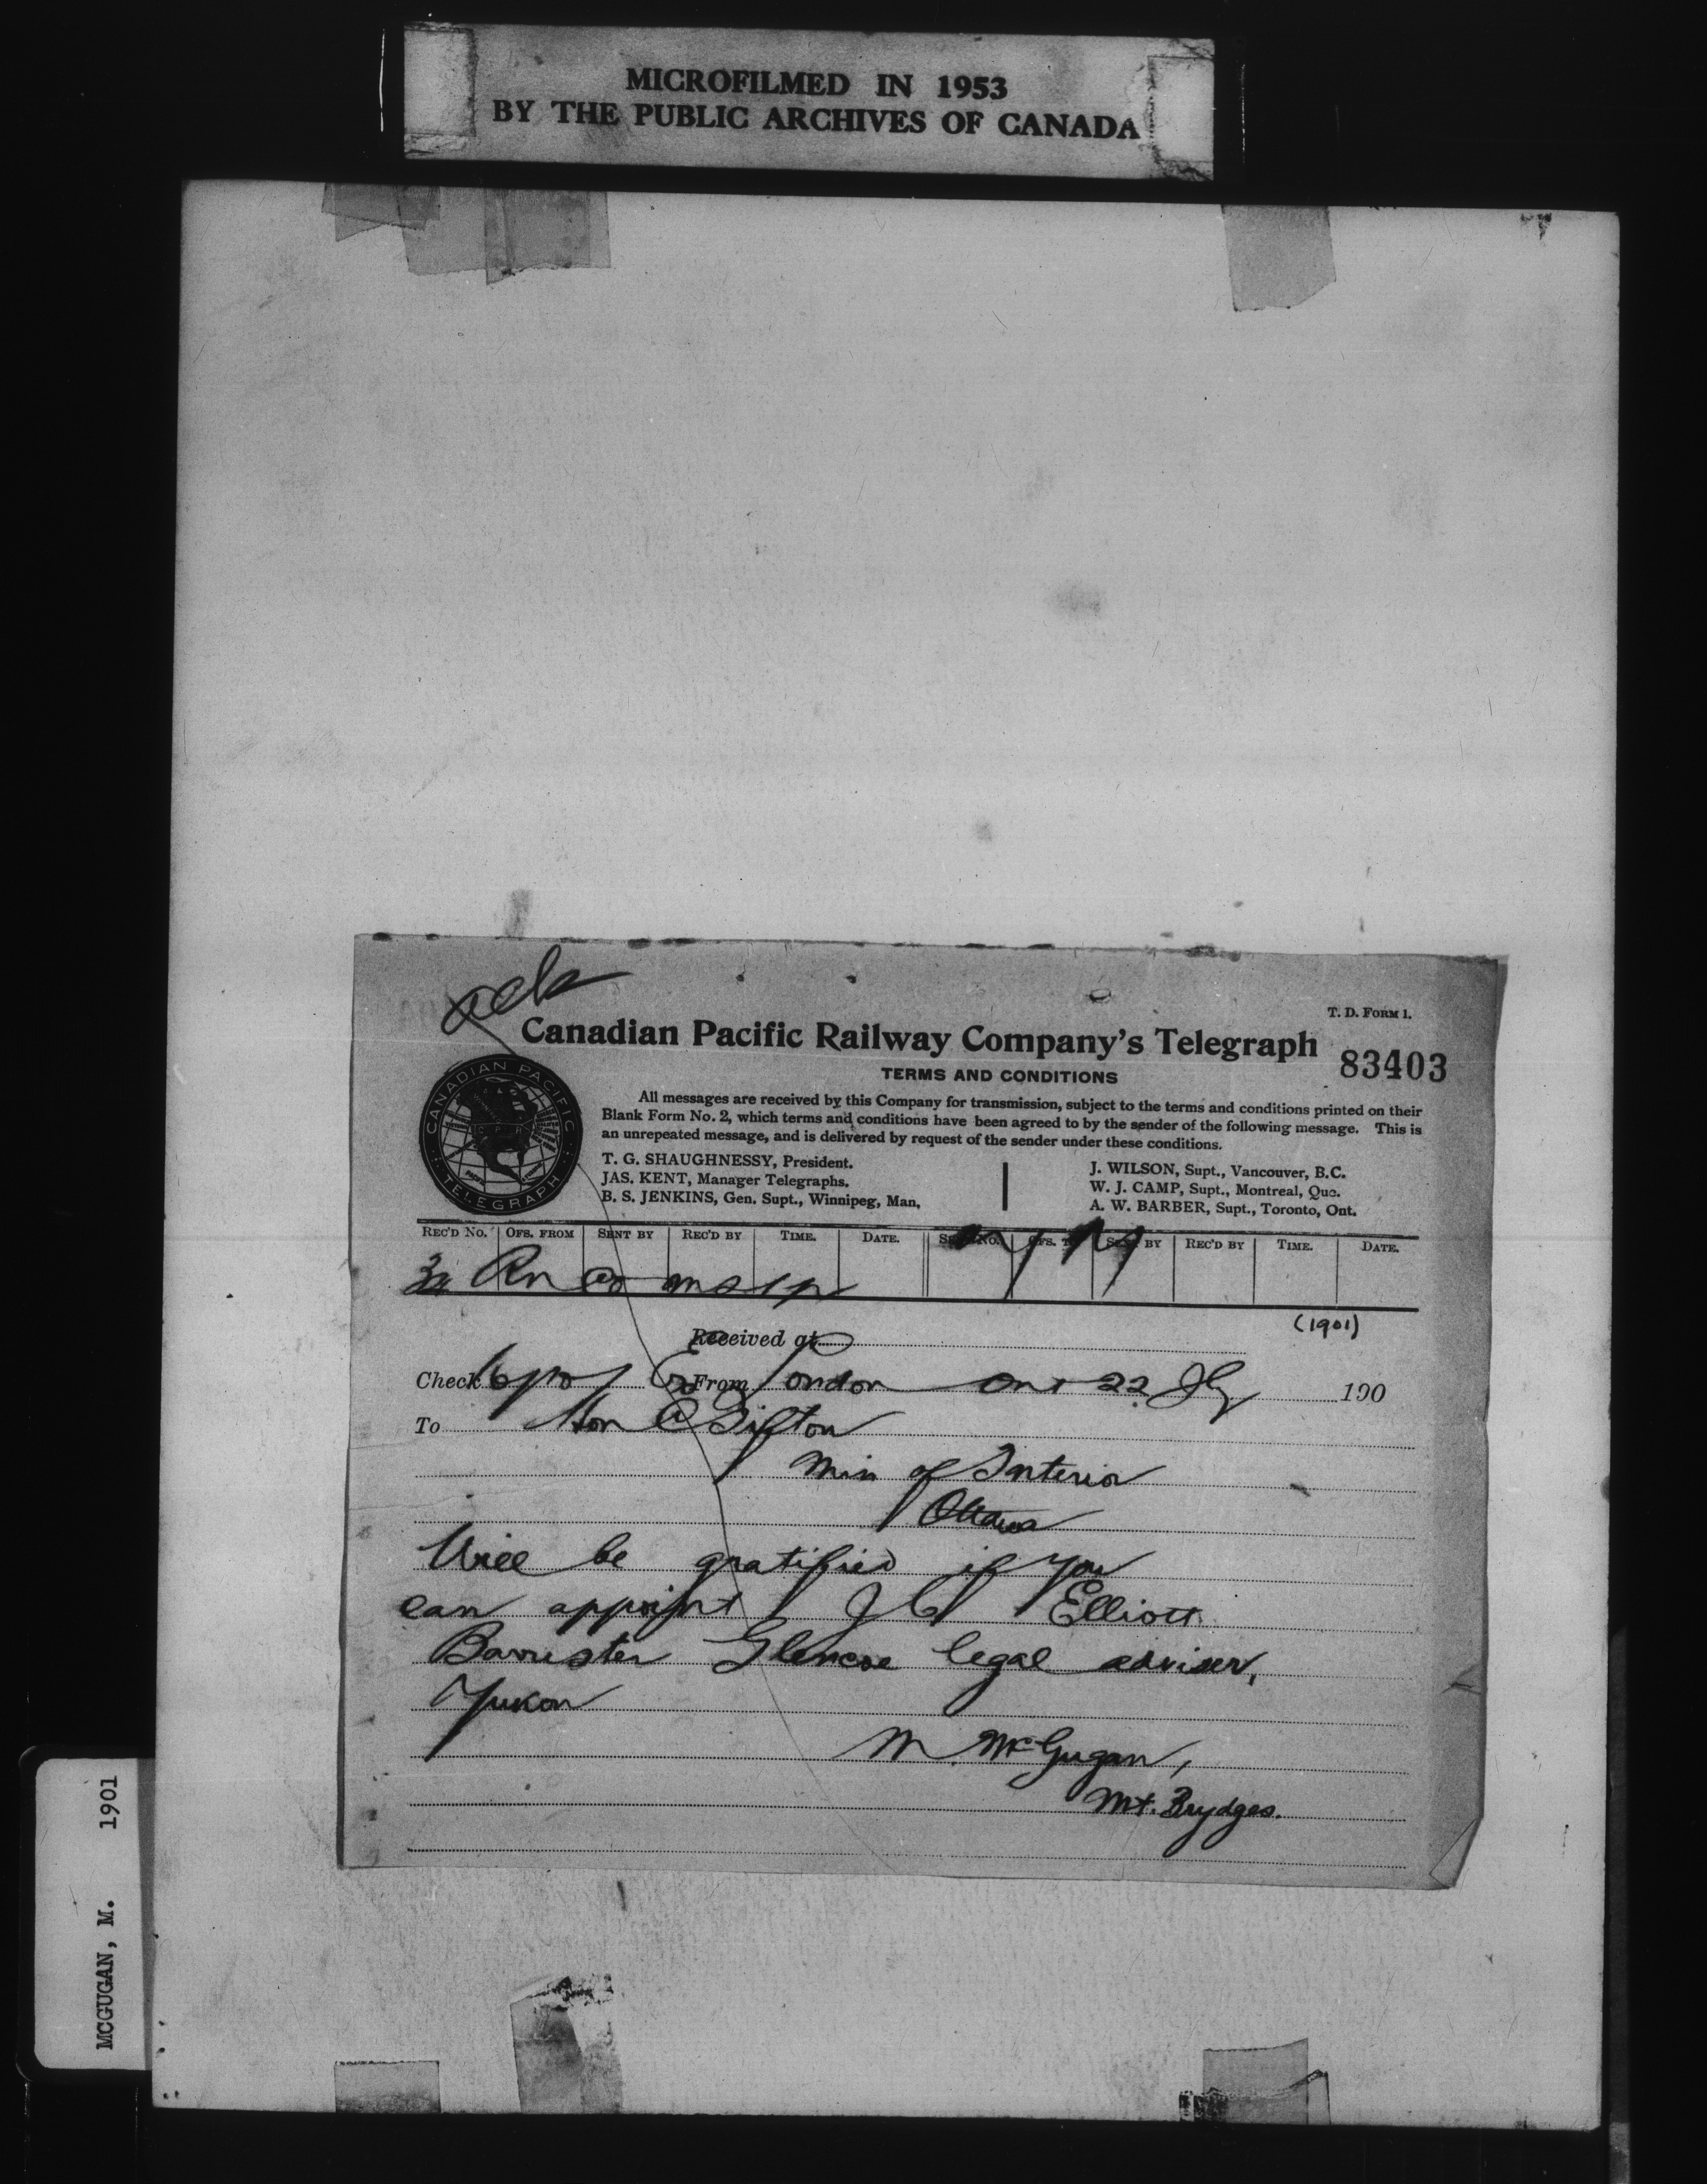 MICROFILMED IN 1953
BY THE PUBLIC ARCHIVES OF CANADA
ack
T. D. FORM 1.
Canadian Pacific Railway Company's Telegraph
83403
TERMS AND CONDITIONS
CANADIAN PACIFIC
TELEGRAPH
All messages are received by this Company for transmission, subject to the terms and conditions printed on their
Blank Form No. 2, which terms and conditions have been agreed to by the sender of the following message. This is
an unrepeated message, and is delivered by request of the sender under these conditions.
T. G. SHAUGHNESSY, President.
JAS. KENT, Manager Telegraphs.
B. S. JENKINS, Gen. Supt., Winnipeg, Man,
J. WILSON, Supt., Vancouver, B.C.
W. J. CAMP, Supt., Montreal, Que.
A. W. BARBER, Supt., Toronto, Ont.
REC'D No. OFS. FROM SENT BY REC'D BY TIME. DATE. SENT No. OFS. TO SENT BY REC'D BY TIME. DATE.
(1901)
Received at
Check From London Ont 22 Jly 190
To Hon C Sifton
Min of Interior
Ottawa
Will be gratified if you
can appoint J C Elliott
Barrister Glencoe legal adviser,
Yukon
M. McGugan,
Mt. Brydges.
MCGUGAN, M. 1901